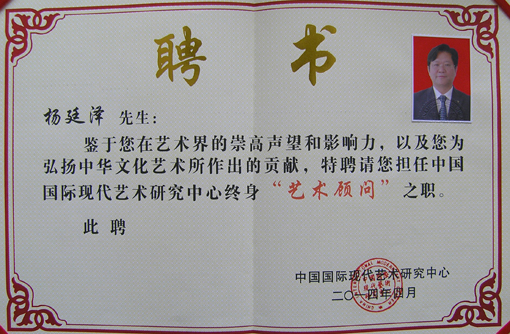 聘 书
杨廷泽 先生：
鉴于您在艺术界的崇高声望和影响力，以及您为
弘扬中华文化艺术所作出的贡献，特聘请您担任中国
国际现代艺术研究中心终身“艺术顾问”之职。
此 聘
中国国际现代艺术研究中心
二〇一四年四月